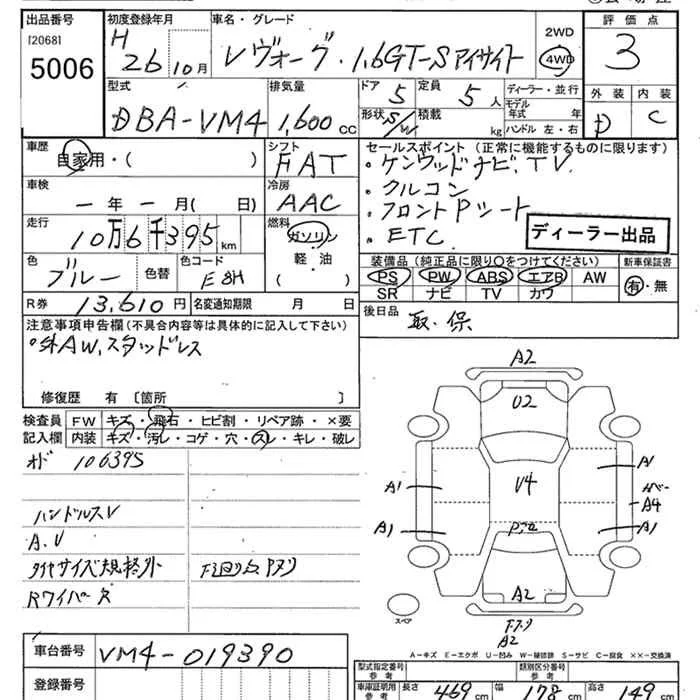 出品番号
[2068]
5006
初度登録年月
H
26 10月
車名・グレード
レヴォーグ・1.6GT-Sアイサイト
2WD
4WD
評価点
3
外装 内装
D C
型式
DBA-VM4
排気量
1,600 cc
ドア 5
定員 5人
形状 S/W
積載 kg
ディーラー・並行
モデル年式 年
ハンドル 左・右
車歴
自家用・( )
シフト
FAT
車検
ー年ー月( 日)
冷房
AAC
走行
10万6千395 km
燃料
ガソリン
軽・油
( )
色
ブルー
色替
色コード
E8H
R券 13,610円
名変通知期限 月 日
セールスポイント(正常に機能するものに限ります)
・ケンウッドナビ、TV
・クルコン
・フロントPシート
・ETC
ディーラー出品
装備品(純正品に限り〇をつけてください)
PS PW ABS エアB AW
SR ナビ TV カワ
新車保証書
有・無
後日品
取・保
注意事項申告欄(不具合内容等は具体的に記入して下さい)
・外AW、スタッドレス
修復歴 有 〔箇所 〕
検査員記入欄
FW キズ・飛石・ヒビ割・リペア跡・×要
内装 キズ・汚レ・コゲ・穴・スレ・キレ・破レ
オド 106395
ハンドルスV
A.V
タイヤサイズ規格外
Rワイパー欠
A2
U2
V4
A1
A1
A1
A4
A1
A2
A2
スペア
A-キズ E-エクボ U-凹み W-補修跡 S-サビ C-腐食 ××-交換済
車台番号
VM4-019390
登録番号
型式指定番号 参考
類別区分番号 参考
車庫証明用 参考
長さ 469 cm
幅 178 cm
高さ 149 cm